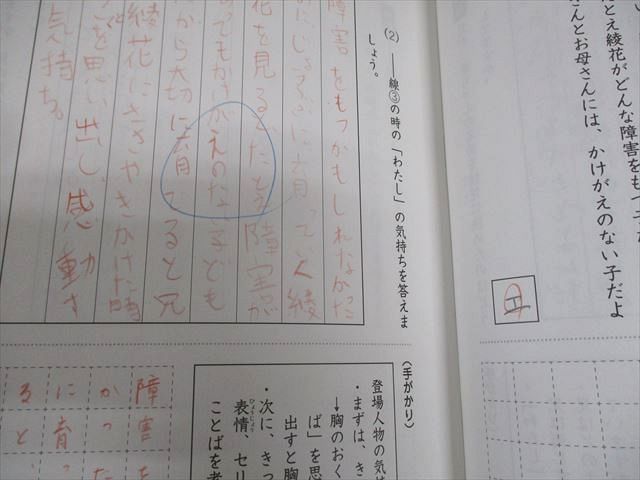 とえ綾花がどんな障害をもって
さんとお母さんには、かけがえのない子だよ
母
(2) ――線③の時の「わたし」の気持ちを答えま
しょう。
障害をもつかもしれなかった
にじょうぶに育っていく綾
花を見るとたとえ障害が
ってもかけがえのない子ども
から大切に育てると兄
綾花にささやきかけた時
を思い出し感動す
気持ち。
〈手がかり〉
登場人物の気
・まずは、き
→胸のおく
ば」を思
出すと胸
・次に、きっ
表情、セリ
ことばを考
障害を
かった
に育っ
ると